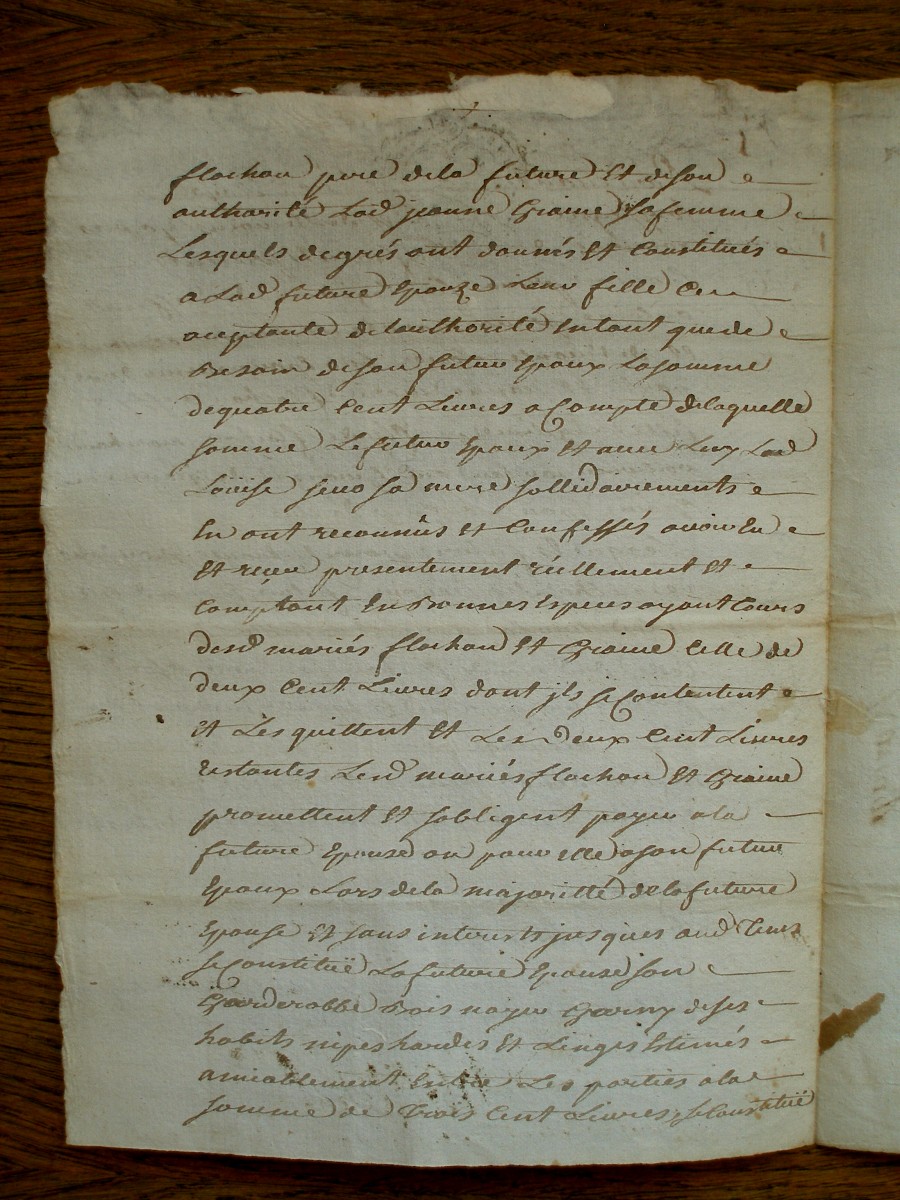 flachon pere dela future Et deson
authorité Lad jeanne Graine sa femme
Lesquels degrés ont donnés Et Constitués
a Lad future Epouze Leur fille Ce
aceptante de lauthorité Entant que de
Besoin deson futur Epoux La somme
dequatre Cent Livres a Compte delaquelle
somme Le futur Epoux Et avec Luy Lad
Loüise sa mere sollidairements
En ont reconnüs et Confessés avoir Eu
Et reçeu presentement réellement Et
Comptant En Bonnes Especes ayant Cours
desd mariés flachon Et Graine Celle de
deux Cent Livres dont jls se Contentent
et Les quittent Et Les deux Cent Livres
restantes Lesd mariés flachon Et Graine
promettent Et sobligent payer a la
future Epouse ou pour elle a son futur
Epoux Lors dela majoritté de la future
Epouse Et sans interests jusques aud Tems
se Constitüe La future Epouse son
Garderobbe Bois noyer Garny de ses
habits nipes hardes Et Linges Estimés
amiablement Entre Les parties a la
somme de Trois Cent Livres, se Constitüe